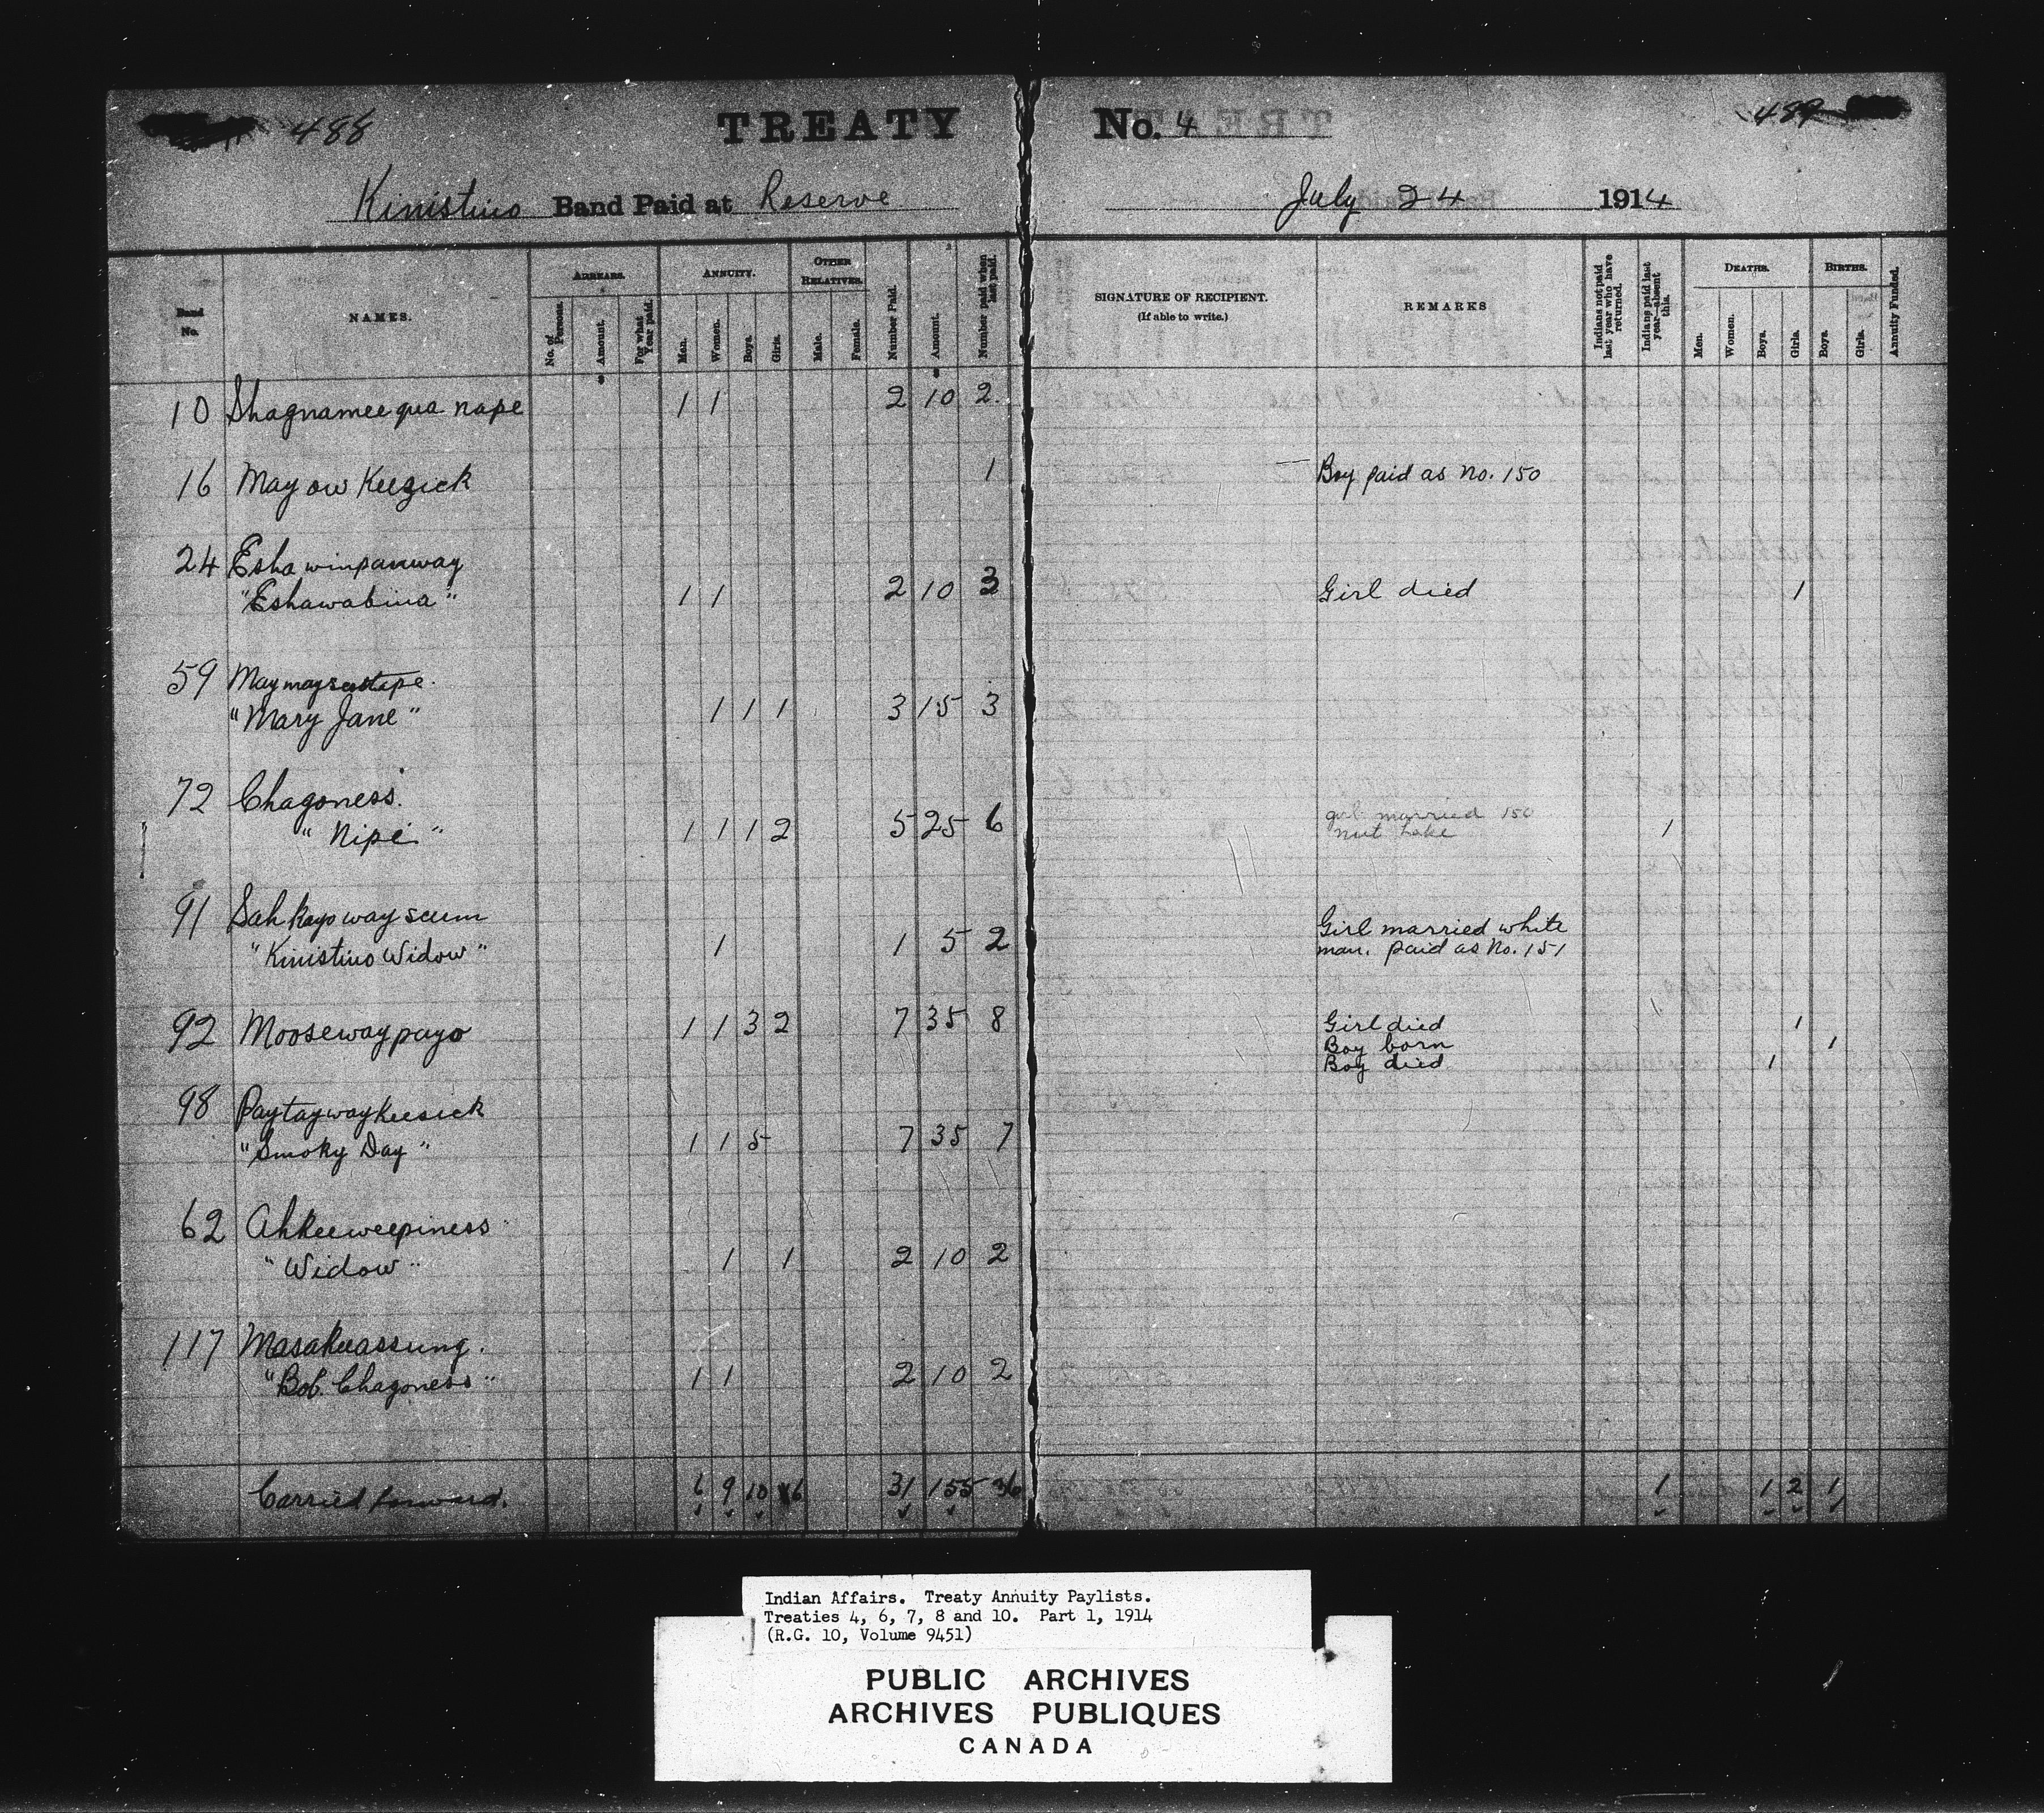 488
TREATY No. 4
489
Kinistino Band Paid at Reserve July 24 1914
Band No.
NAMES.
ARREARS.
No. of Persons.
Amount.
For what Year paid.
ANNUITY.
Men.
Women.
Boys.
Girls.
OTHER RELATIVES.
Male.
Female.
Number Paid.
Amount.
Number paid when last paid.
SIGNATURE OF RECIPIENT.
(If able to write.)
REMARKS
Indians not paid last year who have returned.
Indians paid last year—absent this.
DEATHS.
Men.
Women.
Boys.
Girls.
BIRTHS.
Boys.
Girls.
Annuity Funded.
10 Shagnameequa nape 1 1 2 10 2
16 May ow Keezick 1 Boy paid as No. 150
24 Esha winpanway
"Eshawabina" 1 1 2 10 3 Girl died 1
59
"Mary Jane" 1 1 1 3 15 3
72 Chagoness.
"Nipi" 1 1 1 2 5 25 6 girl married 150
nut Lake 1
91 Sah Kayo way seum
"Kinistino Widow" 1 1 5 2 Girl married white
man. paid as No. 151
92 Moosewaypayo 1 1 3 2 7 35 8 Girl died 1
Boy born 1
Boy died 1
98 Paytaywaykeesick
"Smoky Day" 1 1 5 7 35 7
62 Ahkeeweepiness
"Widow" 1 1 2 10 2
117 Masakeeassung.
"Bob. Chagoness" 1 1 2 10 2
Carried forward. 6 9 10 6 31 155 36 1 1 2 1
Indian Affairs. Treaty Annuity Paylists.
Treaties 4, 6, 7, 8 and 10. Part 1, 1914
(R.G. 10, Volume 9451)
PUBLIC ARCHIVES
ARCHIVES PUBLIQUES
CANADA